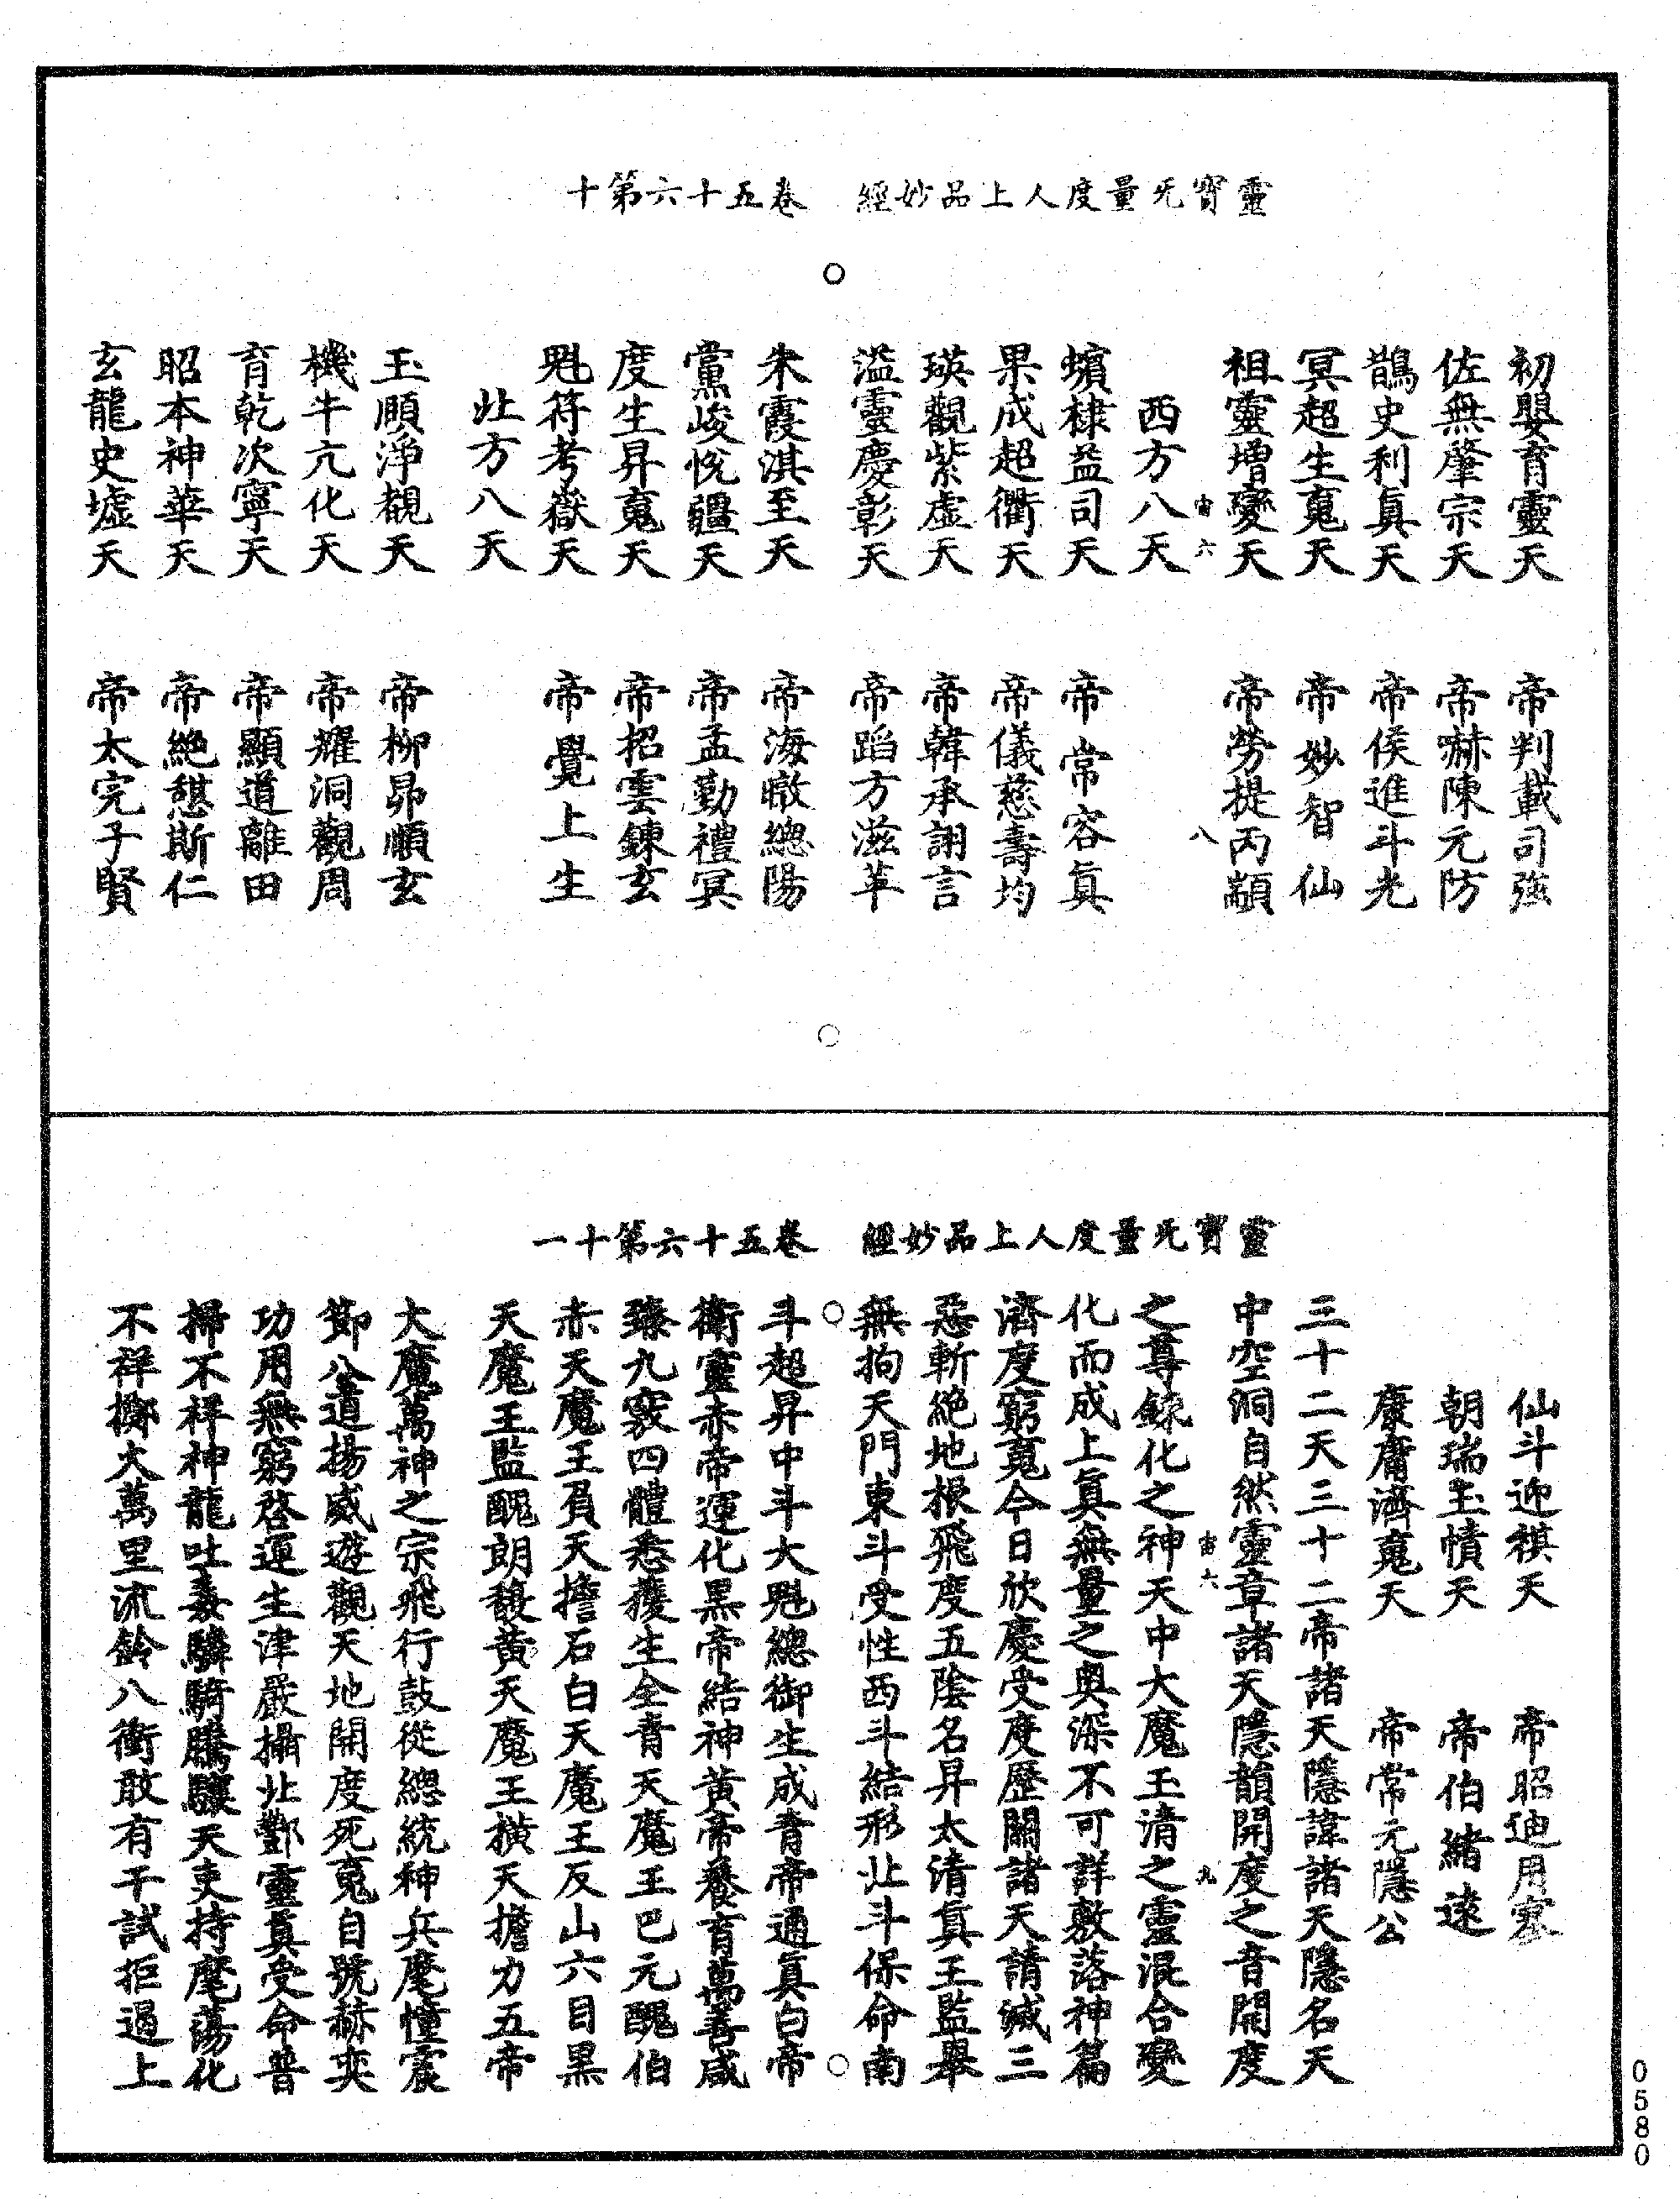 靈寶无量度人上品妙經　卷五十六第十
初嬰育靈天　帝判載司強
佐無肇宗天　帝嚇陳元防
鵲史利真天　帝侯進斗光
冥超生䰟天　帝妙智仙
祖靈增變天　帝勞提丙顓
宙六　八
西方八天
蠙棣益司天　帝常容真
果成超衢天　帝儀慈壽均
瑛觀紫虛天　帝韓承詡言
溢靈慶彰天　帝蹈方滋革
朱霞淇至天　帝海暾總陽
黨峻悅疆天　帝孟勤禮冥
度生昇䰟天　帝招雲鍊玄
魁符考嶽天　帝覺上生
北方八天
玉順淨觀天　帝柳昴順玄
機牛亢化天　帝耀洞觀周
育乾次寧天　帝顯道離田
昭本神華天　帝絕憇斯仁
玄龍史墟天　帝太完子賢
靈寶无量度人上品妙經　卷五十六第十一
仙斗迎祺天　帝昭迪用寒
朝瑞玉憤天　帝伯緒逵
康庸濟䰟天　帝常元隱公
三十二天三十二帝諸天隱諱諸天隱名天
中空洞自然靈章諸天隱韻開度之音開度
宙六　九
之尊鍊化之神天中大魔玉清之靈混合變
化而成上真無量之奧深不可詳敷落神篇
濟度窮䰟今日欣慶受度歷關諸天請滅三
惡斬絕地根飛度五陰名昇太清真王監舉
無拘天門東斗受性西斗結形北斗保命南
斗超昇中斗大魁總御生成青帝通真白帝
衛靈赤帝運化黑帝結神黃帝養育萬善咸
臻九竅四體悉獲生全青天魔王巴元醜伯
赤天魔王負天擔石白天魔王反山六目黑
天魔王監醜朗馥黃天魔王橫天擔力五帝
大魔萬神之宗飛行鼓從總統神兵麾幢震
節公道揚威遊觀天地開度死䰟自號赫奕
功用無窮啓運生津嚴攝北酆靈真受命普
掃不祥神龍吐毒驎騎騰驤天吏持麾蕩化
不祥擲火萬里流鈴八衝敢有干試拒遏上
0580